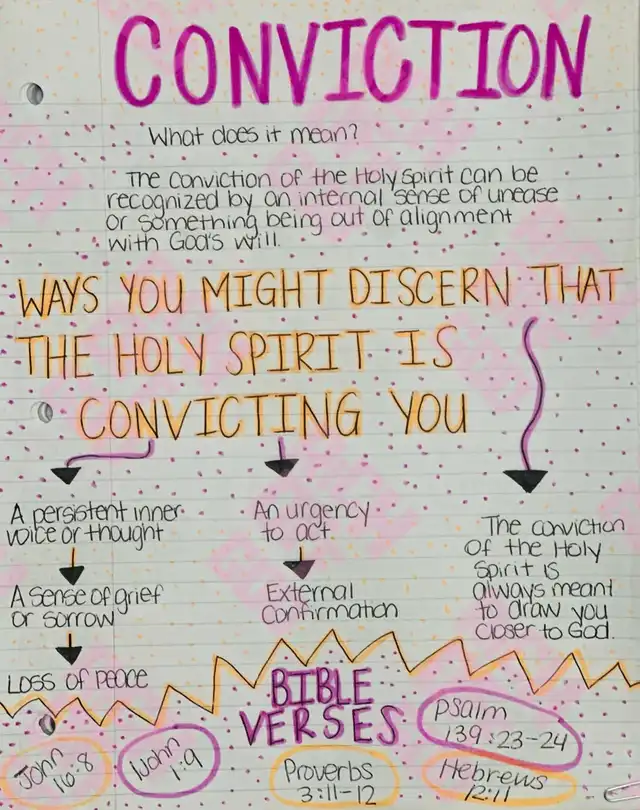 CONVICTION
What does it mean?
The conviction of the Holy Spirit can be
recognized by an internal sense of unease
or something being out of alignment
with God's will.
WAYS YOU MIGHT DISCERN THAT
THE HOLY SPIRIT IS
CONVICTING YOU
A persistent inner
voice or thought
A sense of grief
or sorrow
Loss of Peace
An urgency
to act
External
Confirmation
The conviction
of the Holy
Spirit is
always meant
to draw you
closer to God.
BIBLE
VERSES
John
16:8
1 John
1:9
Proverbs
3:11-12
Psalm
139:23-24
Hebrews
12:11